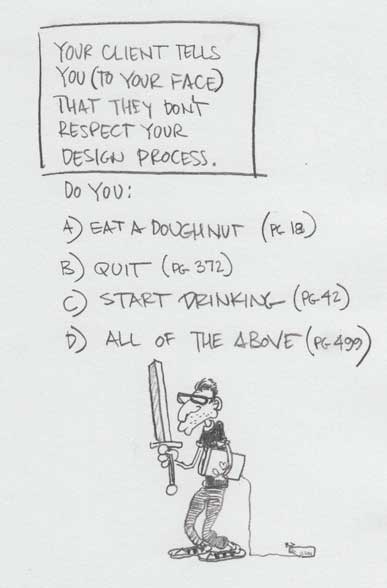 YOUR CLIENT TELLS
YOU (TO YOUR FACE)
THAT THEY DON'T
RESPECT YOUR
DESIGN PROCESS.
DO YOU:
A) EAT A DOUGHNUT (PG 18)
B) QUIT (PG 372)
C) START DRINKING (PG 42)
D) ALL OF THE ABOVE (PG 499)